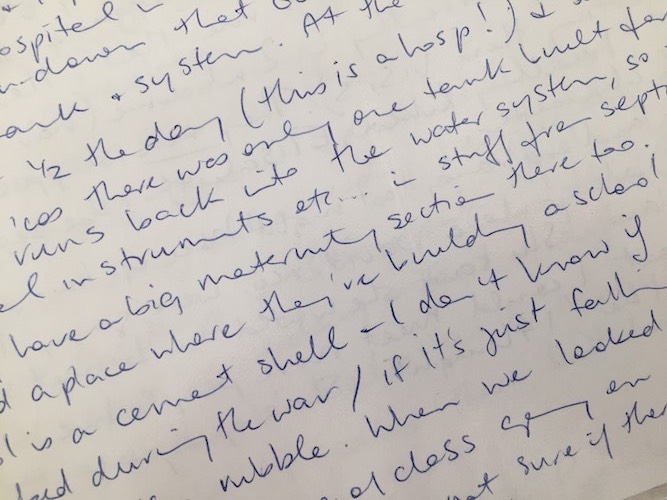 ospital
n-down that
tank & system. At the
1/2 the day (this is a hosp!) &
'cos there was only one tank built for
runs back into the water system, so
el instruments etc... in stuff from septi
have a big maternity section there too.
d a place where they're building a school
l is a cement shell - I don't know if
ked during the war / if it's just fallin
rubble. When we looked
of class going on
not sure if ther